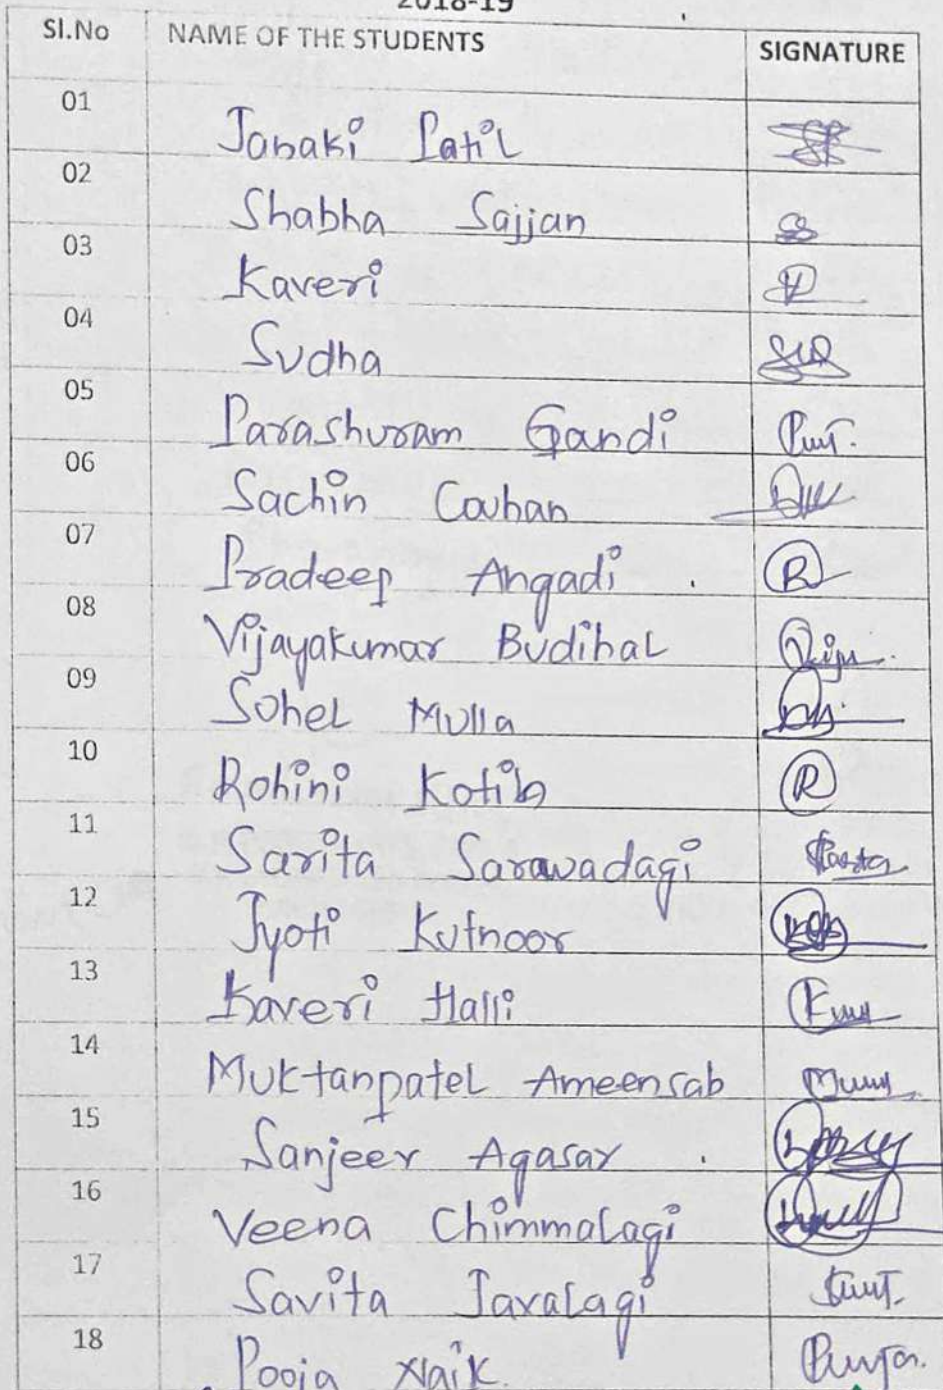 2018-19
Sl.No NAME OF THE STUDENTS SIGNATURE
01 Janaki Patil
02 Shabha Sajjan
03 Kaveri
04 Sudha
05 Parashuram Gandi
06 Sachin Cauhan
07 Pradeep Angadi
08 Vijayakumar Budihal
09 Sohel Mulla
10 Rohini R
11 Sarita Sarawadagi
12 Jyoti Kutnoor
13 Kaveri Halli
14 Muktanpatel Ameensab
15 Sanjeev Agasar
16 Veena Chimmalagi
17 Savita Javalagi
18 Pooja Naik